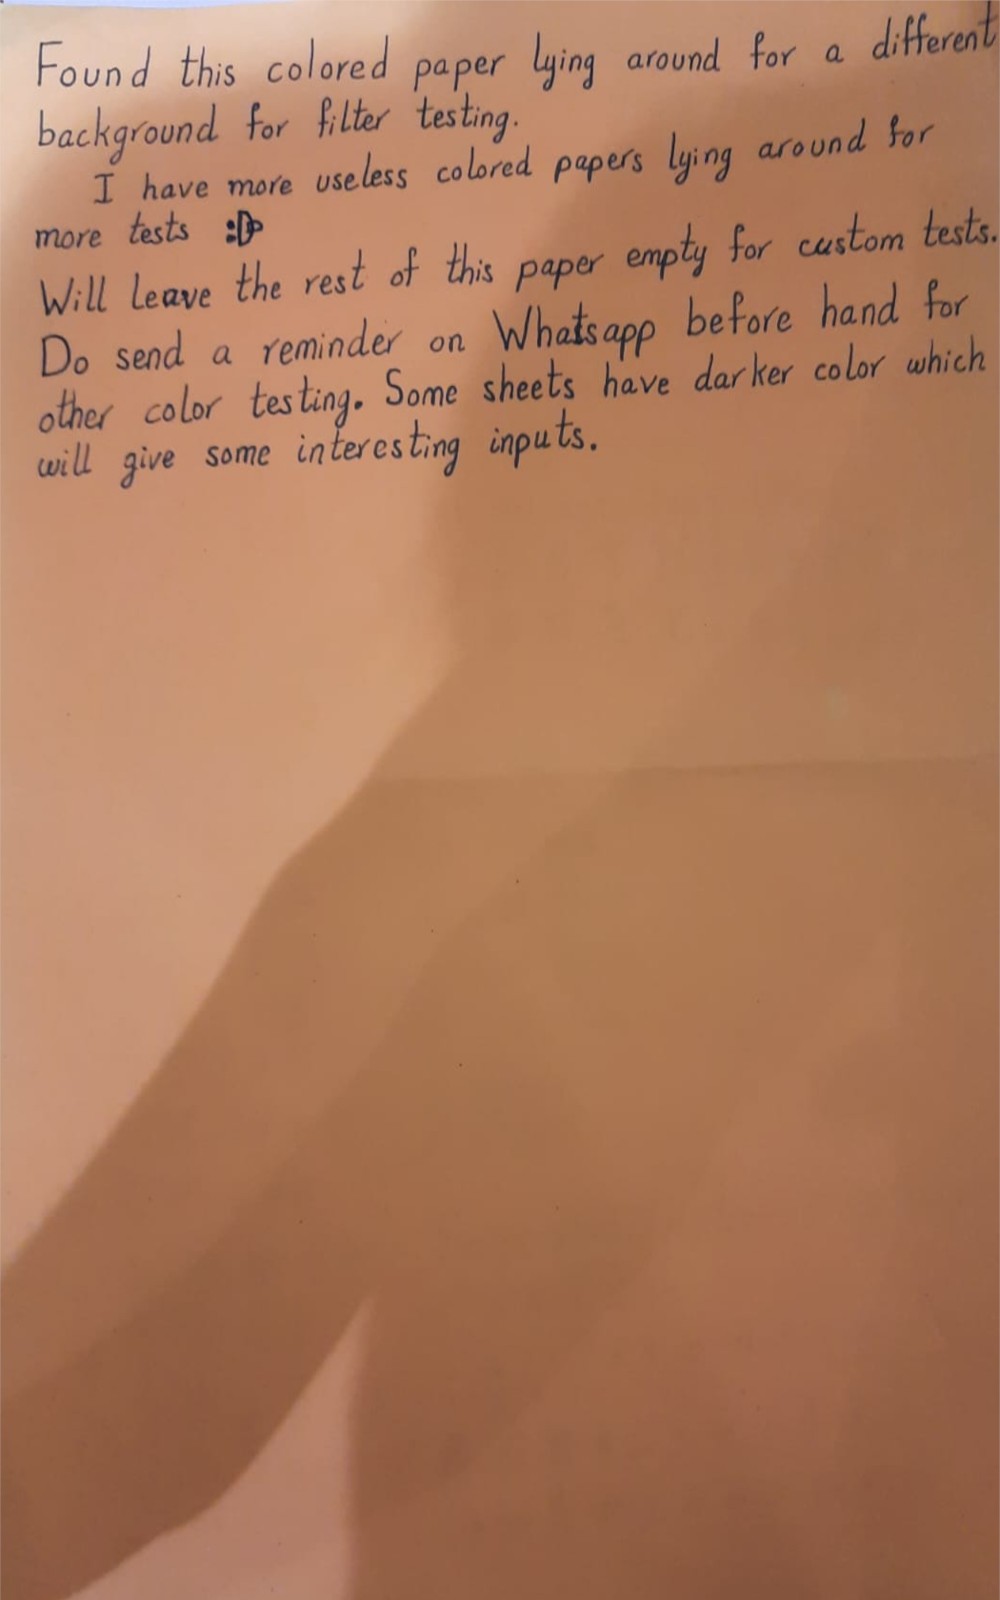 Found this colored paper lying around for a different
background for filter testing.
I have more useless colored papers lying around for
more tests :D
Will leave the rest of this paper empty for custom tests.
Do send a reminder on Whatsapp before hand for
other color testing. Some sheets have darker color which
will give some interesting inputs.